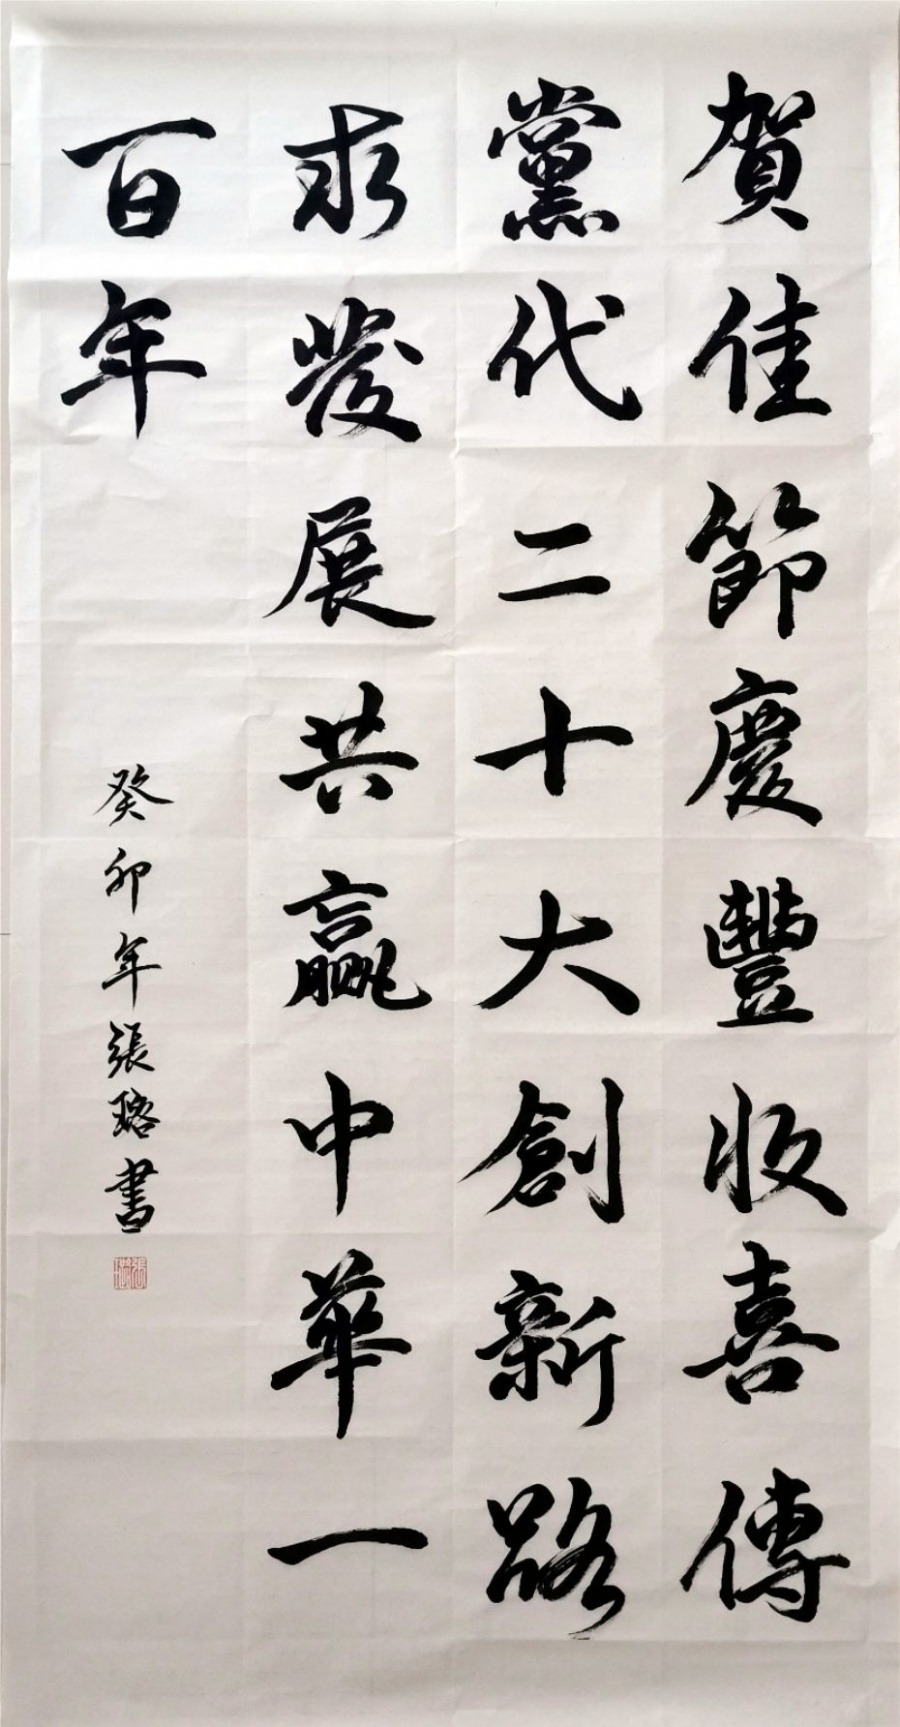 賀佳節慶豐收喜傳
黨代二十大創新路
求發展共贏中華一
百年
癸卯年張瑢書